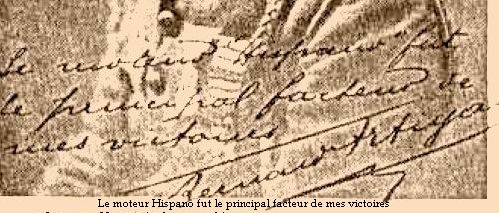 Le moteur "Hispano" fut
le principal facteur de
mes victoires
Bernard Artigau
Le moteur Hispano fut le principal facteur de mes victoires